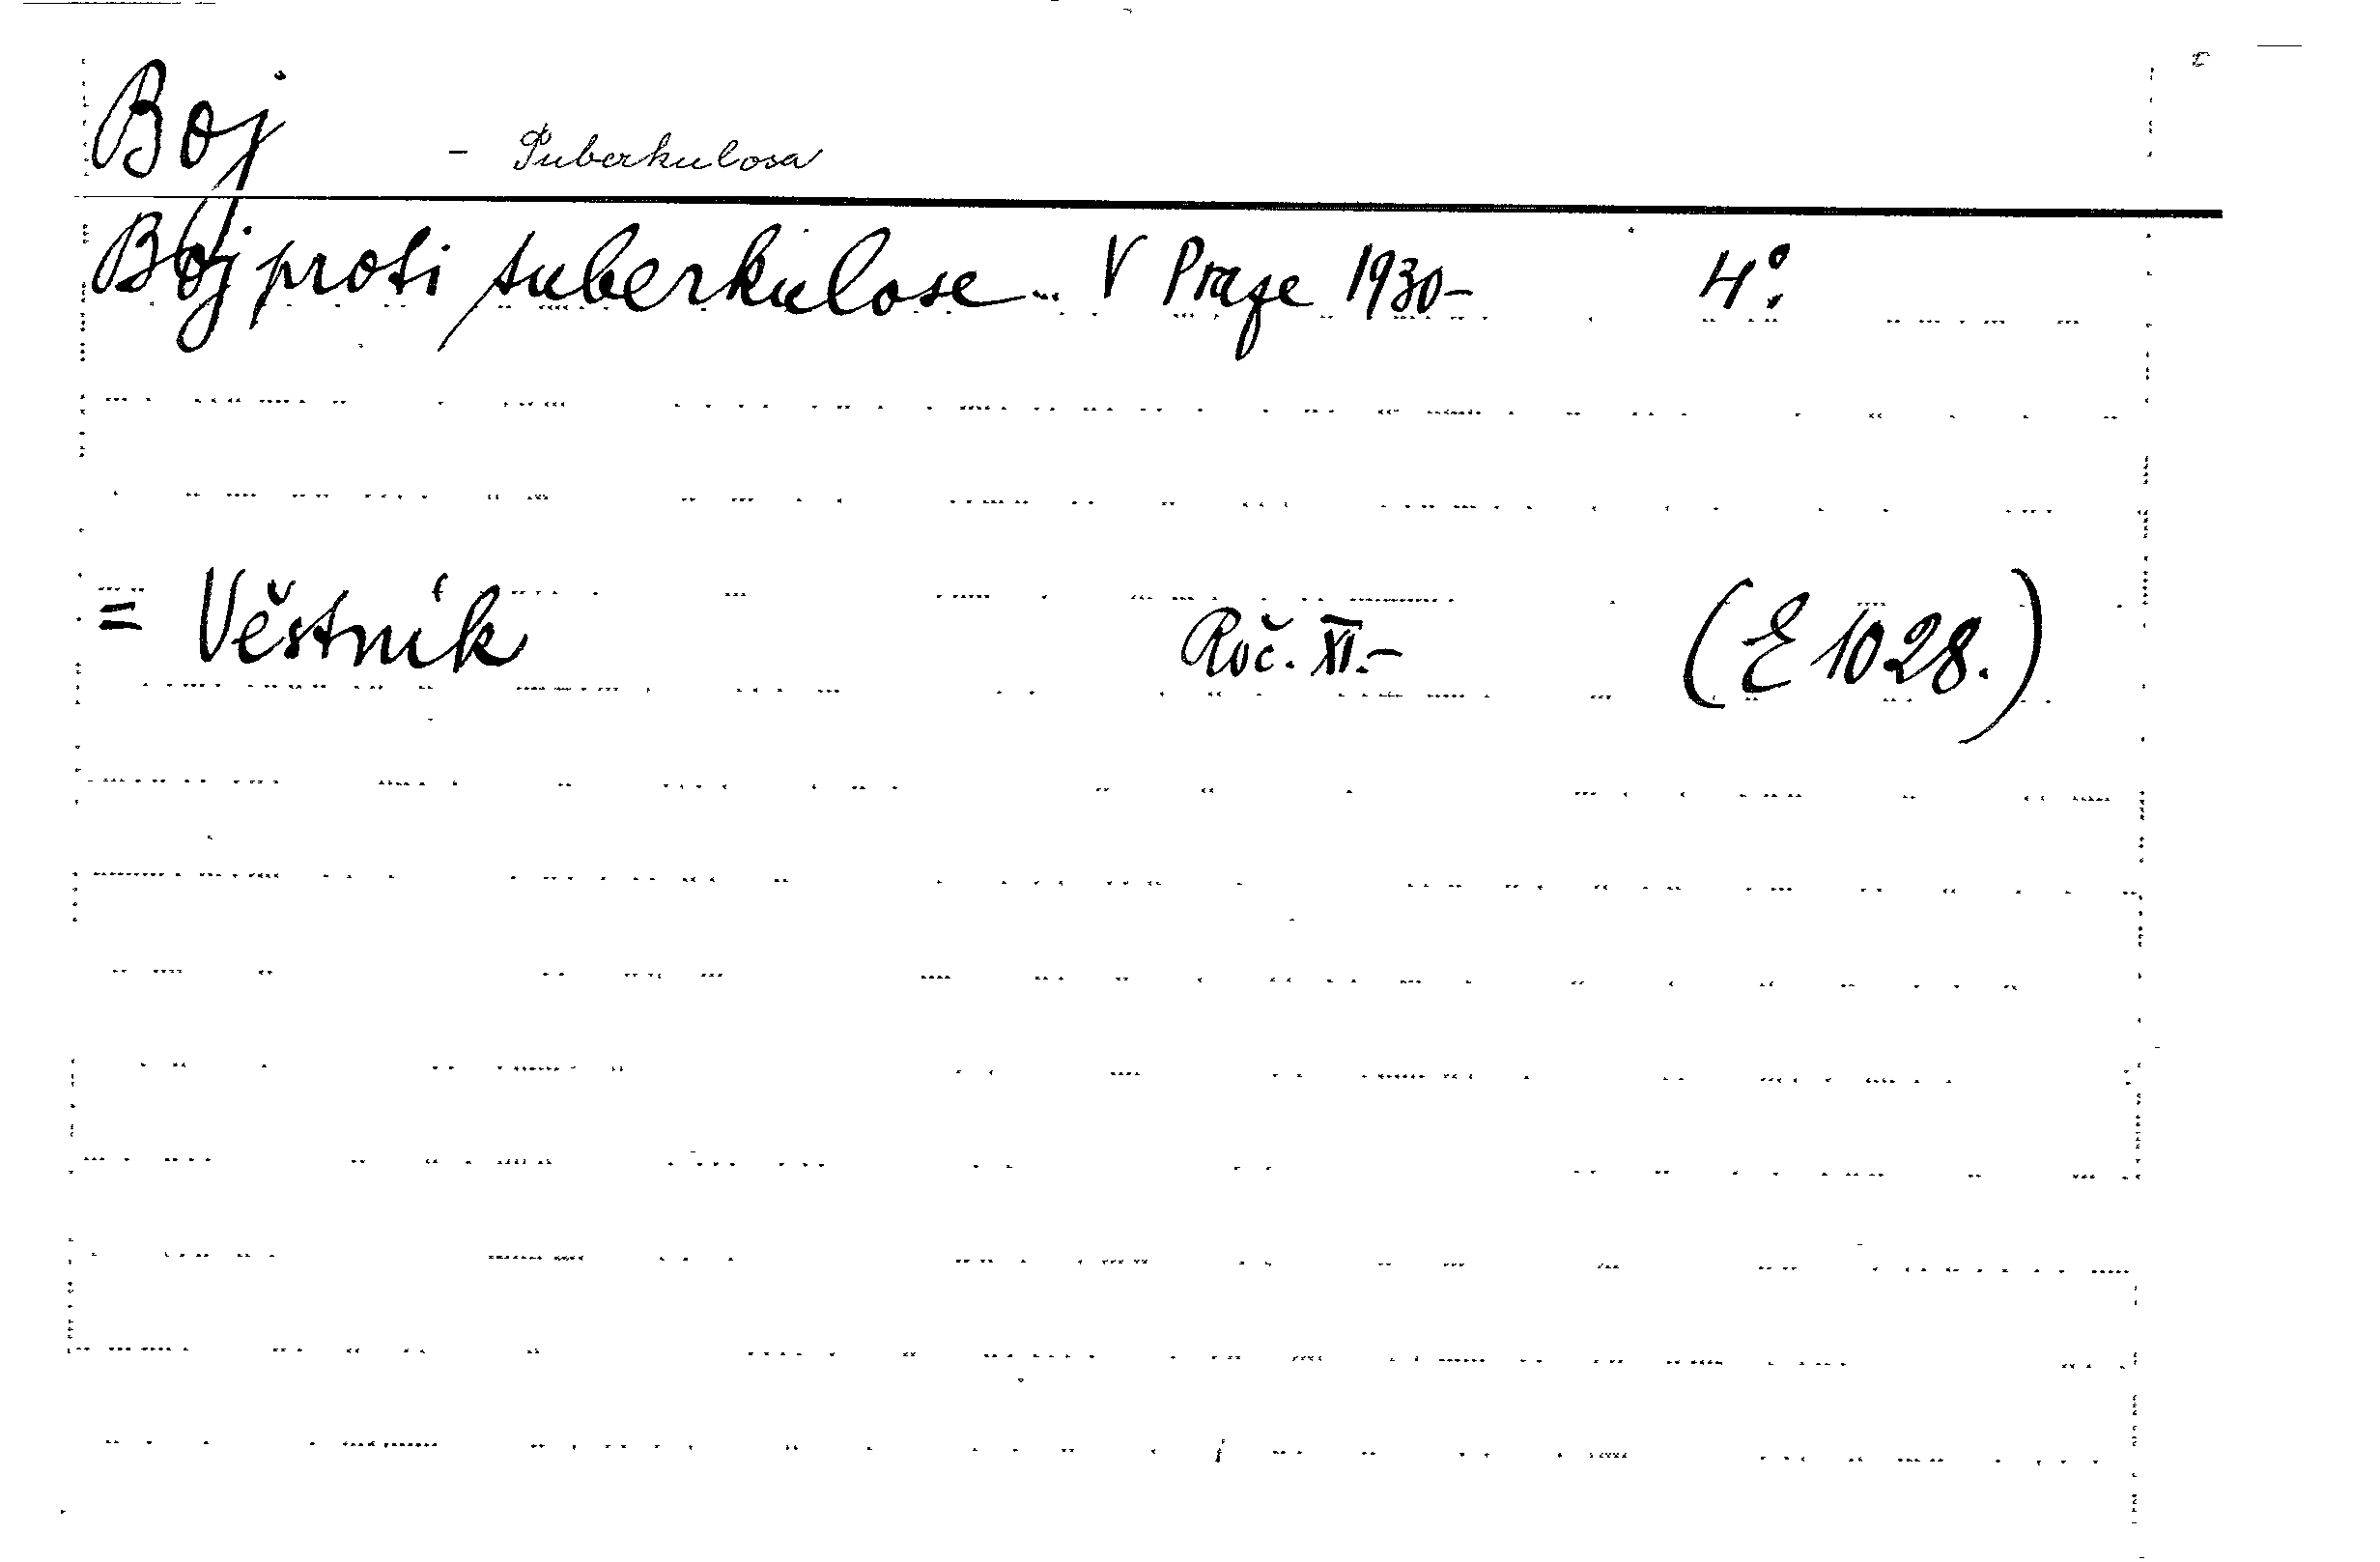 Boj - Tuberkulosa
Boj proti tuberkulose... V Praze 1930- 4°.
= Věstník Roč. XI.- (E 1028.)